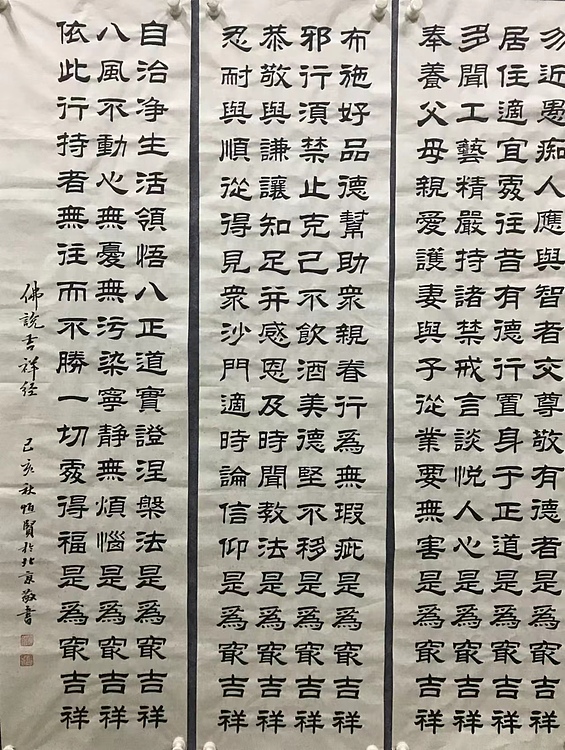 勿近愚痴人應與智者交尊敬有德者是爲㝡吉祥
居住適宜處往昔有德行置身于正道是爲㝡吉祥
多聞工藝精嚴持諸禁戒言談悅人心是爲㝡吉祥
奉養父母親愛護妻與子從業要無害是爲㝡吉祥
布施好品德幫助衆親眷行爲無瑕疵是爲㝡吉祥
邪行須禁止克己不飲酒美德堅不移是爲㝡吉祥
恭敬與謙讓知足并感恩及時聞教法是爲㝡吉祥
忍耐與順從得見衆沙門適時論信仰是爲㝡吉祥
自治净生活領悟八正道實證涅槃法是爲㝡吉祥
八風不動心無憂無污染寧静無煩惱是爲㝡吉祥
依此行持者無往而不勝一切處得福是爲㝡吉祥
佛説吉祥经
己亥秋恒賢於北京敬書